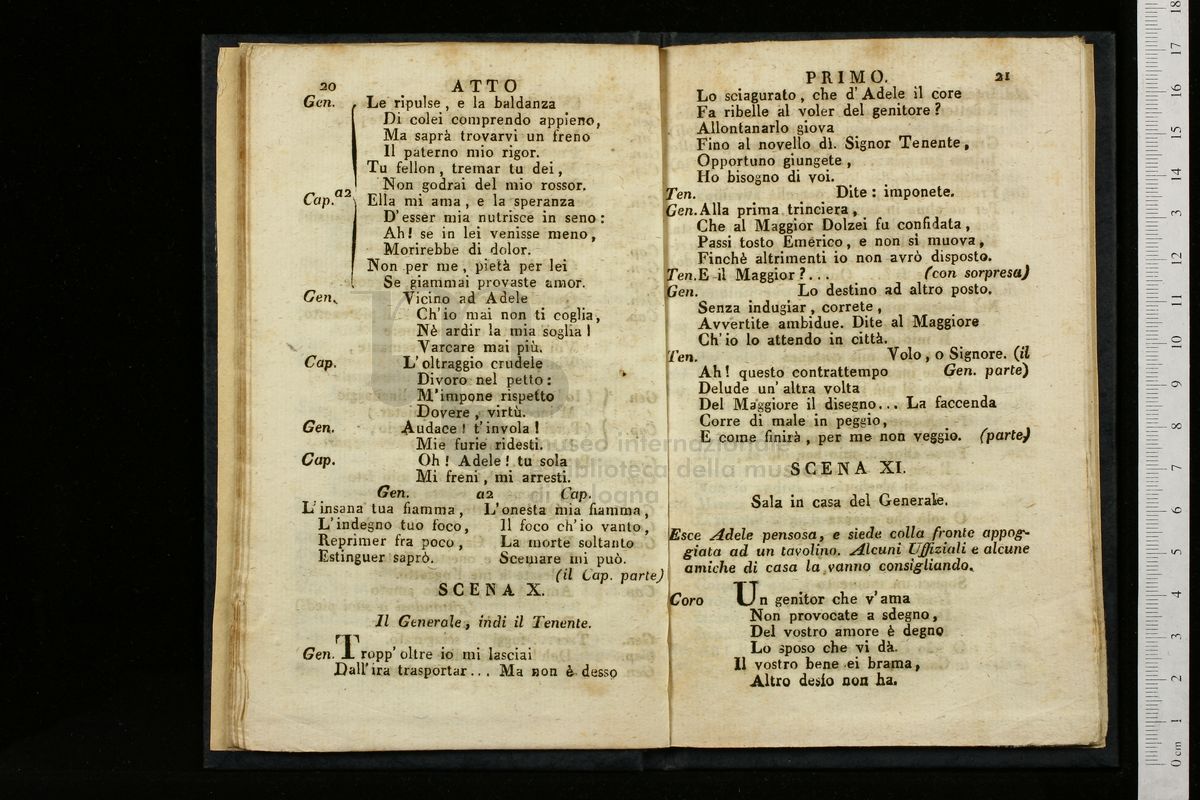 20 ATTO
Gen. Le ripulse, e la baldanza
Di colei comprendo appieno,
Ma saprà trovarvi un freno
Il paterno mio rigor.
Tu fellon, tremar tu dei,
Non godrai del mio rossor.
a2
Cap. Ella mi ama, e la speranza
D'esser mia nutrisce in seno:
Ah! se in lei venisse meno,
Morirebbe di dolor.
Non per me, pietà per lei
Se giammai provaste amor.
Gen. Vicino ad Adele
Ch'io mai non ti coglia,
Nè ardir la mia soglia!
Varcare mai più.
Cap. L'oltraggio crudele
Divoro nel petto:
M'impone rispetto
Dovere, virtù.
Gen. Audace! t'invola!
Mie furie ridesti.
Cap. Oh! Adele! tu sola
Mi freni, mi arresti.
Gen. a2 Cap.
L'insana tua fiamma, L'onesta mia fiamma,
L'indegno tuo foco, Il foco ch'io vanto,
Reprimer fra poco, La morte soltanto
Estinguer saprò. Scemare mi può.
(il Cap. parte)
SCENA X.
Il Generale, indi il Tenente.
Gen. Tropp'oltre io mi lasciai
Dall'ira trasportar... Ma non è desso
PRIMO. 21
Lo sciagurato, che d'Adele il core
Fa ribelle al voler del genitore?
Allontanarlo giova
Fino al novello dì. Signor Tenente,
Opportuno giungete,
Ho bisogno di voi.
Ten. Dite: imponete.
Gen. Alla prima trinciera,
Che al Maggior Dolzei fu confidata,
Passi tosto Emerico, e non si muova,
Finchè altrimenti io non avrò disposto.
Ten. E il Maggior?... (con sorpresa)
Gen. Lo destino ad altro posto.
Senza indugiar, correte,
Avvertite ambidue. Dite al Maggiore
Ch'io lo attendo in città.
Ten. Volo, o Signore. (il
Ah! questo contrattempo Gen. parte)
Delude un'altra volta
Del Maggiore il disegno... La faccenda
Corre di male in peggio,
E come finirà, per me non veggio. (parte)
SCENA XI.
Sala in casa del Generale.
Esce Adele pensosa, e siede colla fronte appog-
giata ad un tavolino. Alcuni Uffiziali e alcune
amiche di casa la vanno consigliando.
Coro Un genitor che v'ama
Non provocate a sdegno,
Del vostro amore è degno
Lo sposo che vi dà.
Il vostro bene ei brama,
Altro desìo non ha.
museo internazionale
biblioteca della musica
di bologna
0 cm 1 2 3 4 5 6 7 8 9 10 11 12 13 14 15 16 17 18